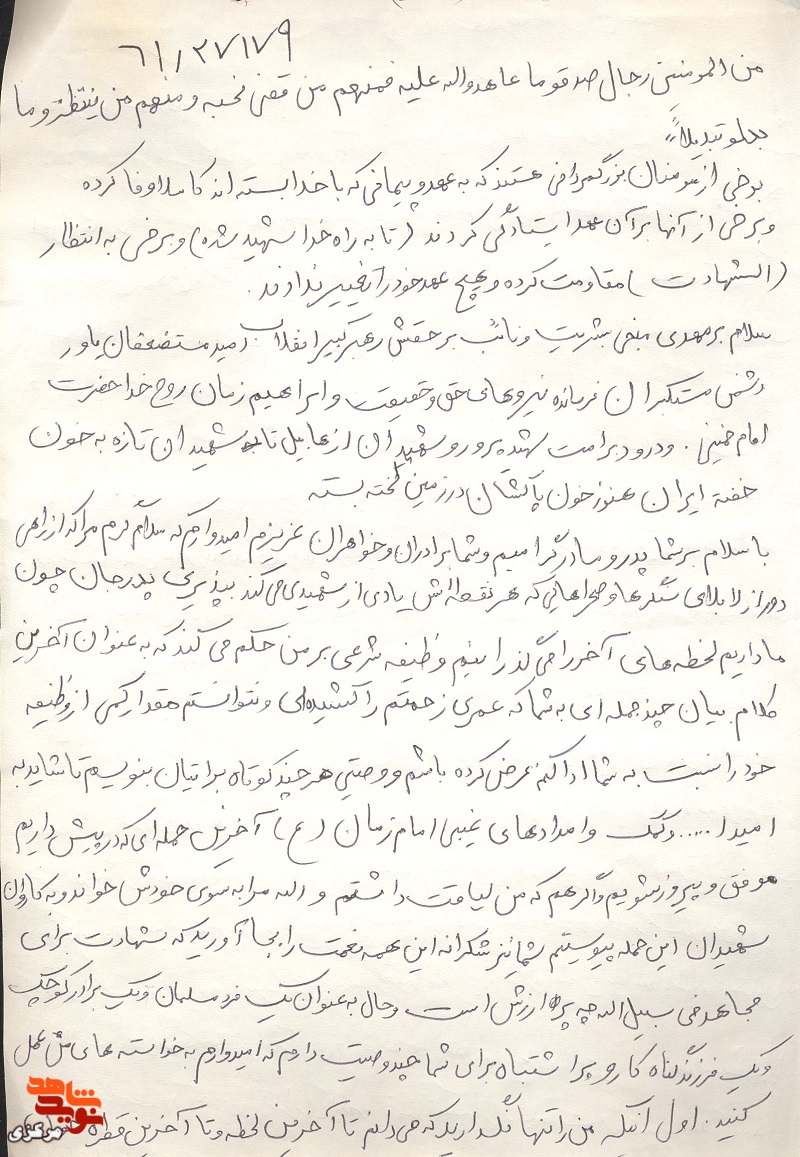 ۶۱٫۲۷۱۷۹
من المومنین رجال صدقو ما عاهدواله علیه فمنهم من قضی نحبه و منهم من ینتظر و ما
بدلو تبدیلاً"
برخی از مومنان بزرگمردانی هستند که به عهد و پیمانی که با خدا بسته اند کاملا وفا کرده
و برخی از آنها بر آن عهد ایستادگی کردند (تا به راه خدا شهید شده) و برخی به انتظار
(الشهادت) مقاومت کرده و هیچ عهد خود را تغییر ندادند.
سلام بر مهدی منجی بشریت و نائب بر حقش رهبر کبیر انقلاب امید مستضعفان یاور
دشمن مستکبران فرمانده نیروهای حق و حقیقت و ابراهیم زمان روح خدا حضرت
امام خمینی. و درود بر امت شهید پرور و شهیدان از هابیل تا شهیدان تازه به خون
خفته ایران هنوز خون پاکشان در زمین لخته بسته
با سلام بر شما پدر و مادر گرامیم و شما برادران و خواهران عزیزم امیدوارم که سلام گرم مرا که از راهی
دور از لابلای سنگرها و صحراهایی که هر نقطه اش یادی از شهیدی می کند بپذیرید پدر جان چون
ما داریم لحظه های آخر را می گذرانیم وظیفه شرعی بر من حکم می کند که به عنوان آخرین
کلام بیان چند جمله ای به شما که عمری زحمتم را کشیده ای و نتوانستم مقدار کمی از وظیفه
خود را نسبت به شما ادا کنم عرض کرده باشم و وصیتی هر چند کوتاه برایتان بنویسم تا شاید به
امید ا..... و کمک و امدادهای غیبی امام زمان (ع) آخرین حمله ای که در پیش داریم
موفق و پیروز شویم و اگر هم که من لیاقت داشتم و اله مرا به سوی خودش خواند و به کاروان
شهیدان این حمله پیوستم شما نیز شکرانه این همه نعمت را بجا آورید که شهادت برای
مجاهد فی سبیل اله چه پر ارزش است و حال به عنوان یک فرد مسلمان و یک برادر کوچک
و یک فرزند گناه کار و پر اشتباه برای شما چند وصیت دارم که امیدوارم به خواسته های من عمل
کنید. اول اینکه من را تنها نگذارید که می دانم تا آخرین لحظه و تا آخرین قطره
نوید شاهد
مرکزی